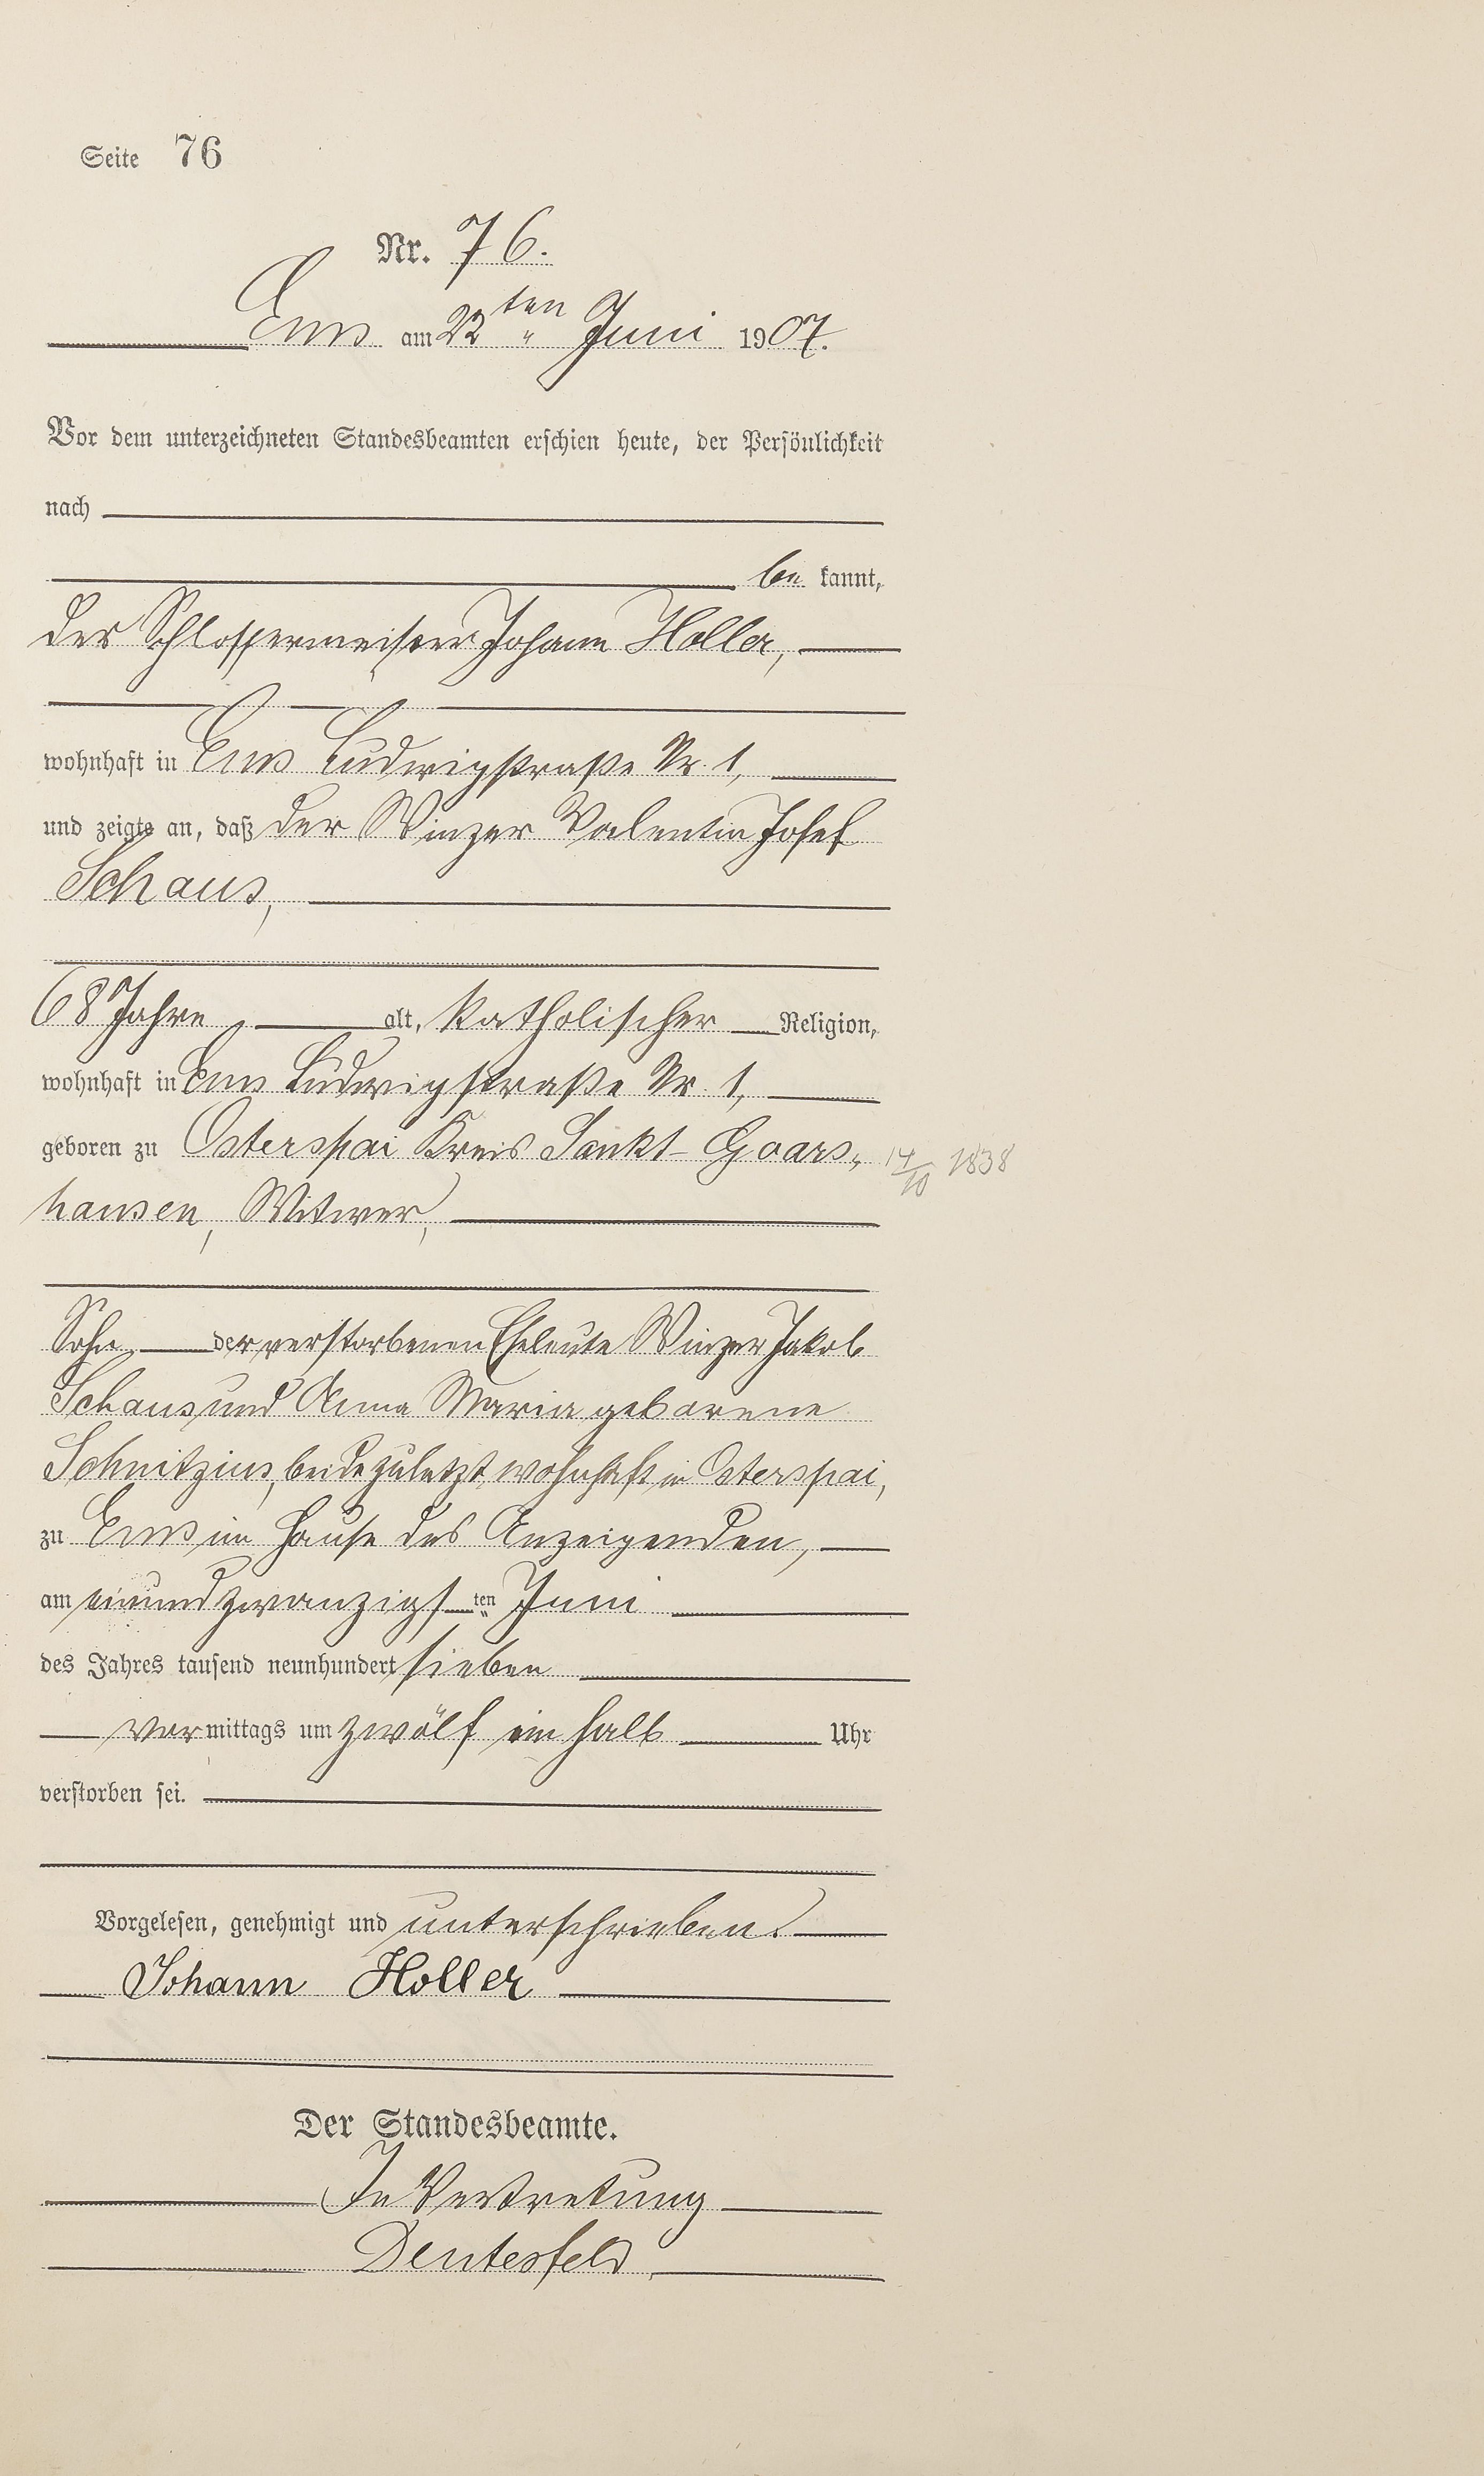 Seite 76
Nr. 76.
Ems am 22ten Juni 1907.
Vor dem unterzeichneten Standesbeamten erschien heute, der Persönlichkeit
nach
be kannt,
der Schlossermeister Johann Holler,
wohnhaft in Ems Ludwigstraße Nr. 1,
und zeigte an, daß der Winzer Valentin Josef
Schaus,
68 Jahre alt, katholischer Religion,
wohnhaft in Ems Ludwigstraße Nr. 1,
geboren zu Osterspai Kreis Sankt-Goars- 14/10 1838
hausen, Witwer,
Sohn der verstorbenen Eheleute Winzer Jakob
Schaus und Anna Maria geborene
Schnitzius, beide zuletzt wohnhaft in Osterspai,
zu Ems im Hause des Anzeigenden,
am einundzwanzigsten Juni
des Jahres tausend neunhundert sieben
vormittags um zwölf ein halb Uhr
verstorben sei.
Vorgelesen, genehmigt und unterschrieben.
Johann Holler
Der Standesbeamte.
In Vertretung